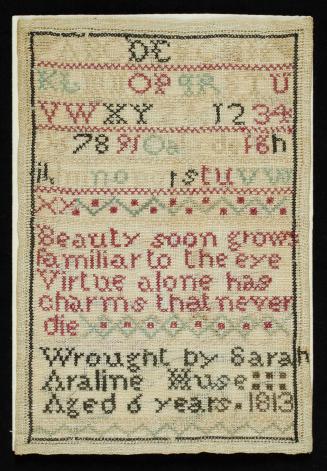 KL OP QR U
VWXY 1234
78 91
h
no rstuvw
xy
Beauty soon grows
familiar to the eye
Virtue alone has
charms that never
die
Wrought by Sarah
Araline Muse
Aged 6 years. 1813